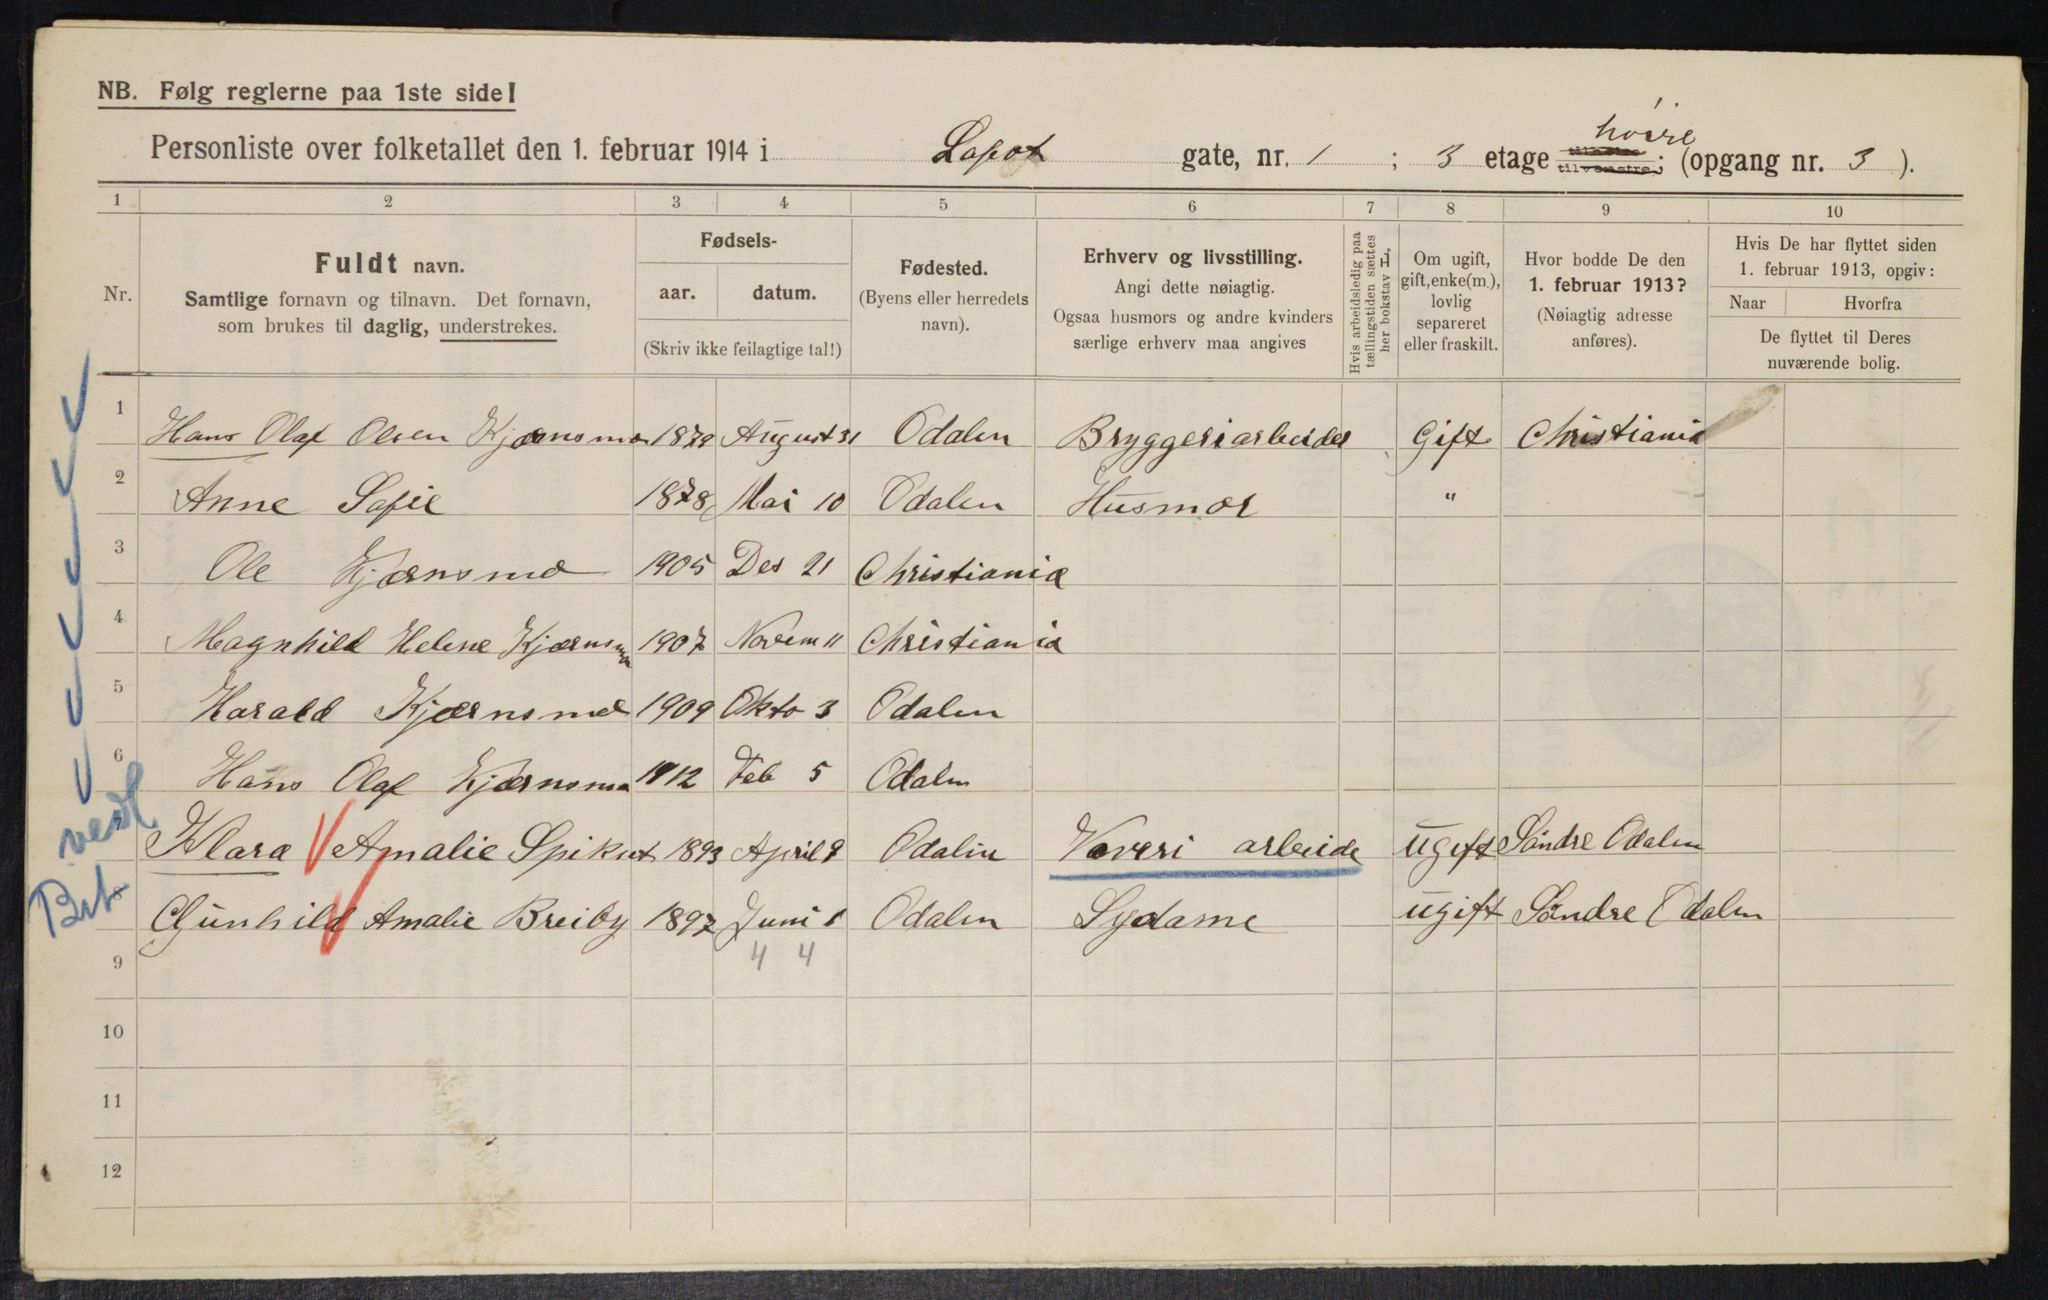 NB. Følg reglerne paa 1ste side!
Personliste over folketallet den 1. februar 1914 i Lapot gate, nr. 1 ; 3 etage høire; (opgang nr. 3 ).
1 2 3 4 5 6 7 8 9 10
Nr.
Fuldt navn.
Samtlige fornavn og tilnavn. Det fornavn,
som brukes til daglig, understrekes.
Fødsels-
aar. datum.
(Skriv ikke feilagtige tal!)
Fødested.
(Byens eller herredets
navn).
Erhverv og livsstilling.
Angi dette nøiagtig.
Ogsaa husmors og andre kvinders
særlige erhverv maa angives
Hvis arbeidsledig paa
tællingstiden sættes
her bokstav L,
Om ugift,
gift, enke(m.),
lovlig
separeret
eller fraskilt.
Hvor bodde De den
1. februar 1913?
(Nøiagtig adresse
anføres).
Hvis De har flyttet siden
1. februar 1913, opgiv:
Naar Hvorfra
De flyttet til Deres
nuværende bolig.
1 Hans Olaf Olsen Kjærnsmo 1879 August 31 Odalen Bryggeriarbeider Gift Christiania
2 Anne Sofie 1878 Mai 10 Odalen Husmor "
3 Ole Kjærnsmo 1905 Des 21 Christiania
4 Magnhild Helene Kjærnsmo 1907 Novem 11 Christiania
5 Harald Kjærnsmo 1909 Okto 3 Odalen
6 Hans Olaf Kjærnsmo 1912 Feb 5 Odalen
Klara Amalie Spikut 1893 April 9 Odalen Væveri arbeide ugift Söndre Odalen
Gunhild Amalie Breiby 1897 Juni 1 Odalen Sydame ugift Söndre Odalen
4 4
9
10
11
12